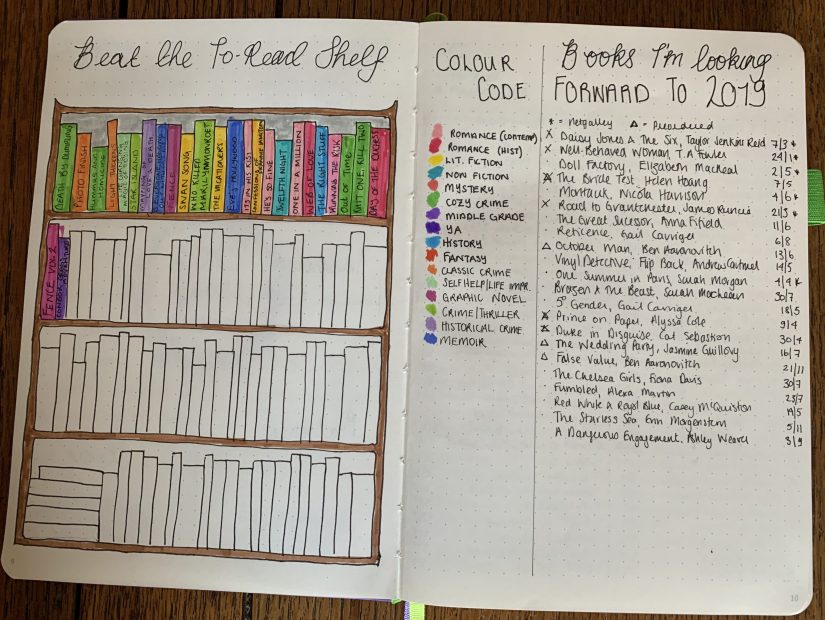 Beat the To-Read Shelf
DEATH BY DUMPLING
PHOTO FINISH
MUMMIES AND
LIGHT
STAR ISLAND
FENCE
SWAN SONG
WHO KILLED MARILYN MONROE?
THE VACATIONERS
EVE'S HOLLYWOOD
IT'S IN HIS KISS
HE'S SO FINE
TWELFTH NIGHT
ONE IN A MILLION
WEB OF LOVE
THE RIGHT STUFF
WINNING THE RISK
OUT OF TIME
MITT ONE, KILL TWO
DAY OF THE DUCHESS
FENCE VOL 2
COLOUR
CODE
ROMANCE (CONTEMP)
ROMANCE (HIST)
LIT. FICTION
NON FICTION
MYSTERY
COZY CRIME
MIDDLE GRADE
YA
HISTORY
FANTASY
CLASSIC CRIME
SELF HELP/LIFE IMPR.
GRAPHIC NOVEL
CRIME/THRILLER
HISTORICAL CRIME
MEMOIR
Books I'm looking
FORWARD TO 2019
* = Netgalley △ = Preordered
X Daisy Jones & The Six, Taylor Jenkins Reid 7/3 *
X Well-Behaved Woman, T.A Fowler 24/1 *
Doll Factory, Elizabeth Macneal 2/5 *
The Bride Test, Helen Hoang 7/5
· Montauk, Nicola Harrison 4/6 *
X Road to Grantchester, James Runcie 21/3 *
· The Great Sucessor, Anna Fifield 11/6
· Reticence, Gail Carriger 6/8
△ October Man, Ben Aaronovitch 13/6
· Vinyl Detective, Flip Back, Andrew Cartmel 14/5
· One Summer in Paris, Sarah Morgan 4/4 *
· Brazen & The Beast, Sarah Maclean 30/7
· 5th Gender, Gail Carriger 18/5
Prince on Paper, Alyssa Cole 9/4
Duke in Disguise, Cat Sebastian 30/4
△ The Wedding Party, Jasmine Guillory 16/7
△ False Value, Ben Aaronovitch 21/11
· The Chelsea Girls, Fiona Davis 30/7
· Fumbled, Alexa Martin 23/7
· Red White & Royal Blue, Casey McQuiston 14/5
· The Starless Sea, Erin Morgenstern 5/11
· A Dangerous Engagement, Ashley Weaver 3/9
10